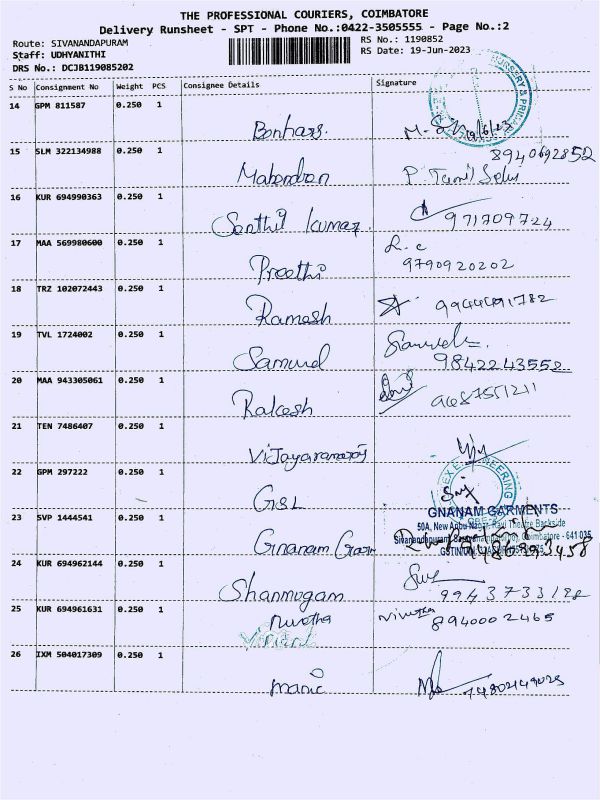 THE PROFESSIONAL COURIERS, COIMBATORE
Delivery Runsheet - SPT - Phone No.:0422-3505555 - Page No.:2
Route: SIVANANDAPURAM
RS No.: 1190852
Staff: UDHYANITHI
RS Date: 19-Jun-2023
DRS No.: DCJB119085202
S No Consignment No Weight PCS Consignee Details Signature
14 GPM 811587 0.250 1
NURSERY & PRIMA
19/6/23
15 SLM 322134988 0.250 1
8940692852
Mahendran P Tamil Selvi
16 KUR 694990363 0.250 1
Senthil kumar 971709724
17 MAA 569980600 0.250 1
Preethi 9790920202
18 TRZ 102072443 0.250 1
Ramesh
19 TVL 1724002 0.250 1
Samuel 9842243552
20 MAA 943305061 0.250 1
Rakesh
21 TEN 7486407 0.250 1
22 GPM 297222 0.250 1
ENGINEERING
GISL
GNANAM GARMENTS
23 SVP 1444541 0.250 1
50A, New Backside
Sivanandapuram, Coimbatore - 641 035
GSTIN
Gnanam
24 KUR 694962144 0.250 1
Shanmugam
25 KUR 694961631 0.250 1
Nivetha Nivetha 8940002465
26 IXM 504017309 0.250 1
manic